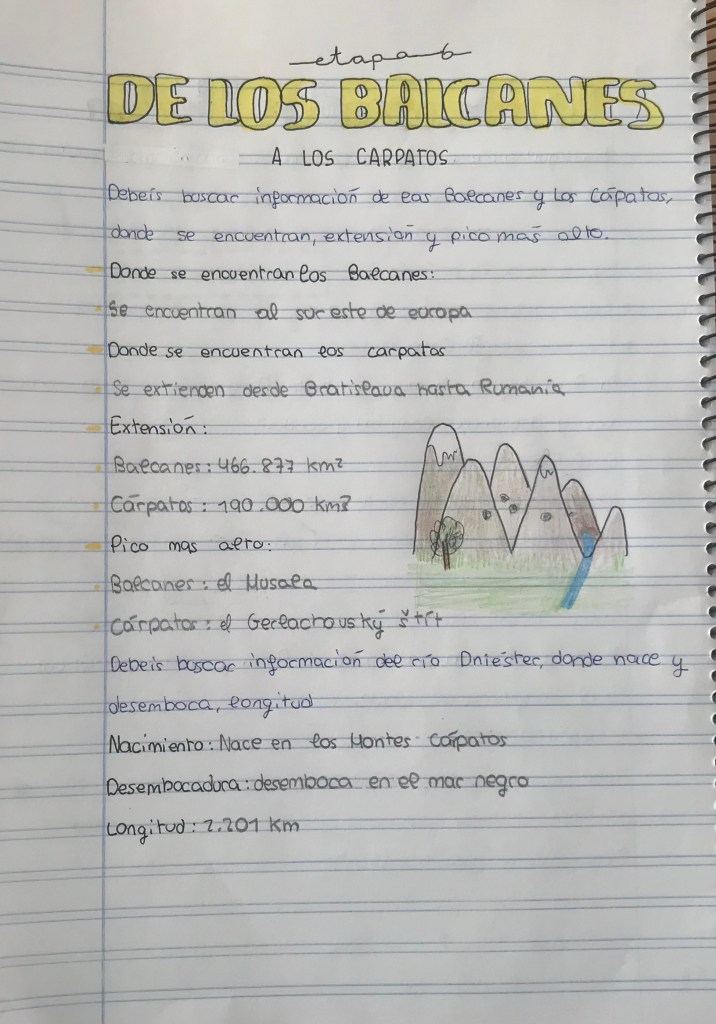 etapa 6
DE LOS BALCANES
A LOS CARPATOS
Debeis buscar información de las Balcanes y los Cárpatos,
donde se encuentran, extensión y pico mas alto.
Donde se encuentran los Balcanes:
Se encuentran al sureste de europa
Donde se encuentran los carpatos
Se extienden desde Bratislava hasta Rumanía
Extensión:
Balcanes: 466.877 km²
Cárpatos: 190.000 km²
Pico mas alto:
Balcanes: el Musala
Cárpatos: el Gerlachovský štít
Debeis buscar información del río Dniéster, donde nace y
desemboca, longitud
Nacimiento: Nace en los Montes Cárpatos
Desembocadura: desemboca en el mar negro
Longitud: 2.201 Km